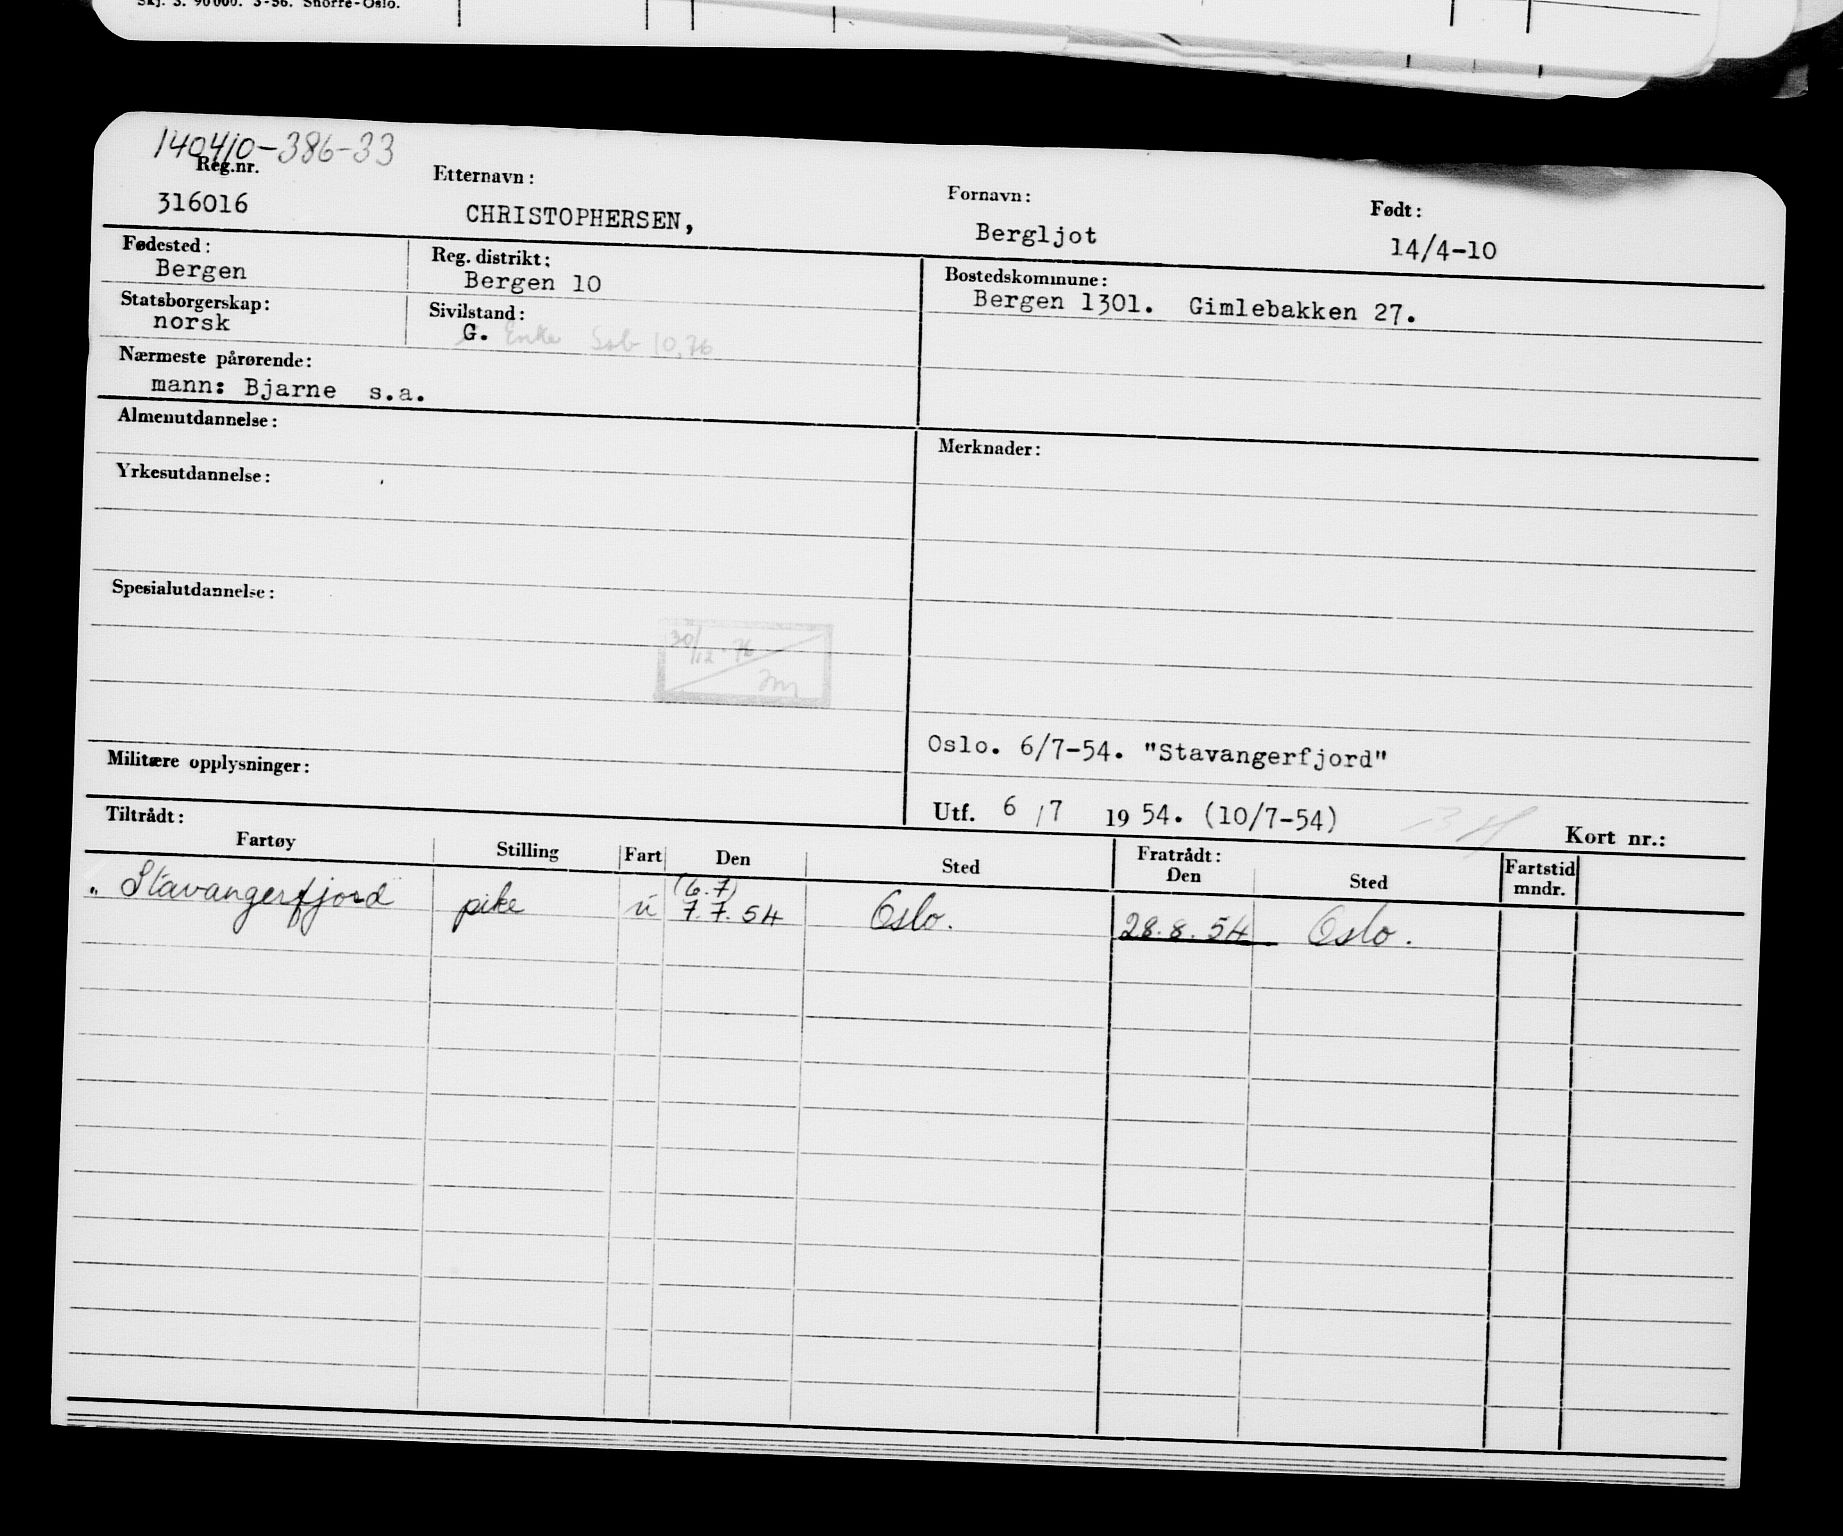 Skj. 3. 90000. 3-56. Snorre-Oslo.
140410-386-33
Reg.nr. Etternavn: Fornavn: Født:
316016 CHRISTOPHERSEN, Bergljot 14/4-10
Fødested: Reg. distrikt: Bostedskommune:
Bergen Bergen 10 Bergen 1301. Gimlebakken 27.
Statsborgerskap: Sivilstand:
norsk G. Enke Sob 10,76
Nærmeste pårørende:
mann: Bjarne s.a.
Almenutdannelse: Merknader:
Yrkesutdannelse:
Spesialutdannelse:
30/12-76
Oslo. 6/7-54. "Stavangerfjord"
Militære opplysninger:
Utf. 6/7 1954. (10/7-54) Kort nr.:
Tiltrådt: Fratrådt:
Fartøy Stilling Fart Den Sted Den Sted Fartstid mndr.
(6.7)
" Stavangerfjord pike u 7.7.54 Oslo. 28.8.54 Oslo.